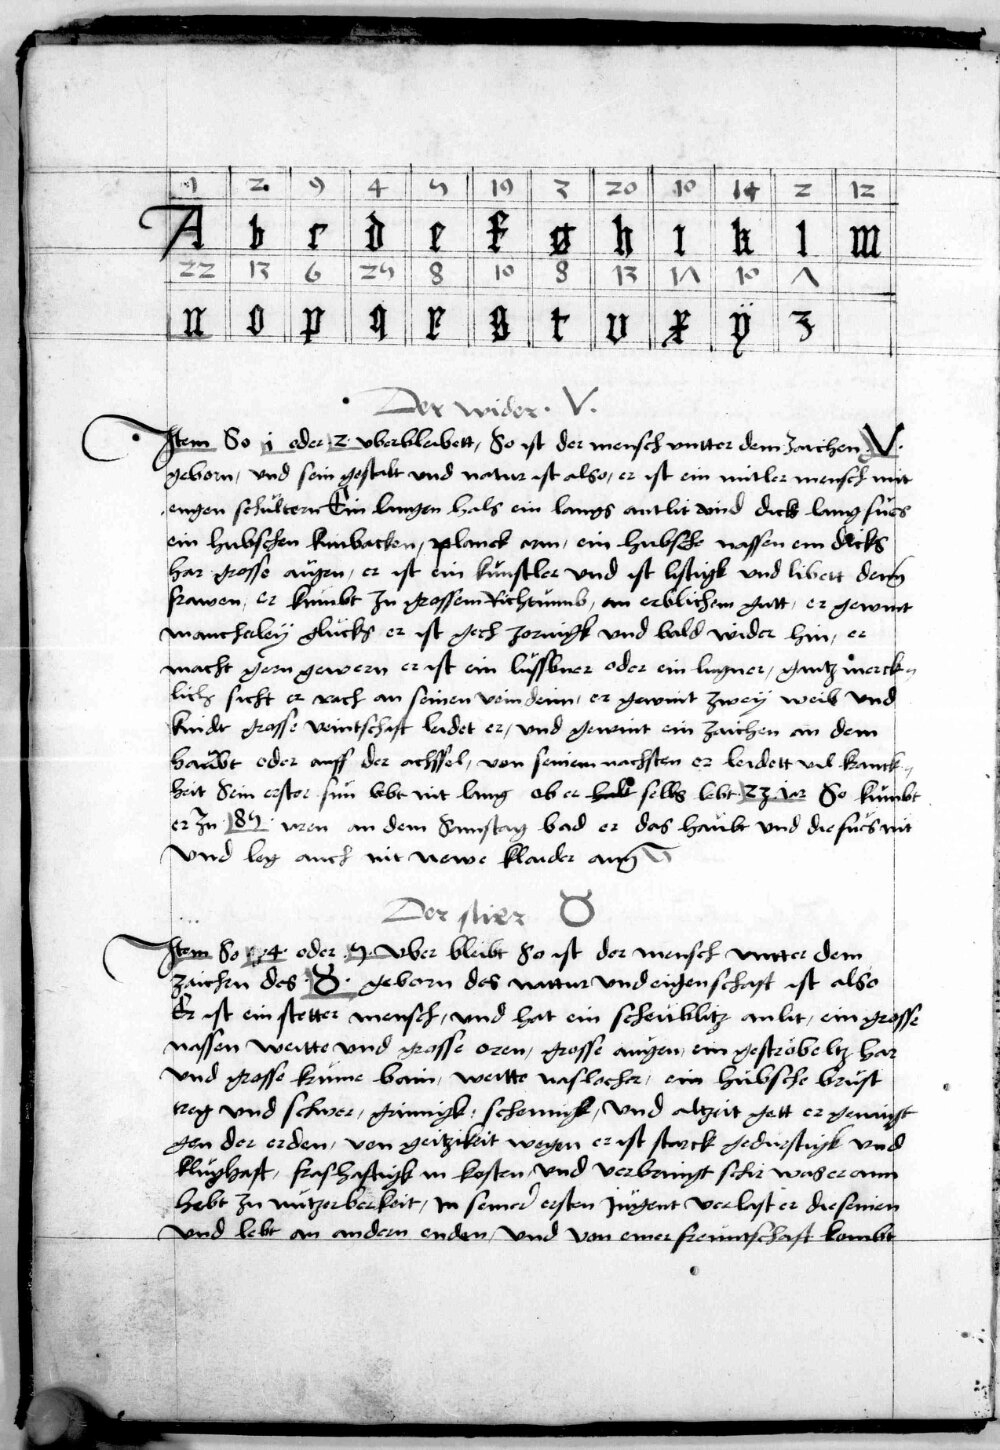 1 2 9 4 5 19 3 20 10 14 2 12
A b c d e f g h i k l m
22 13 6 25 8 10 8 13 10 7
n o p q r s t v x ÿ z
Der wider · V ·
Item So i oder 2 vberbleibett, So ist der mensch vntter dem zaichen V ·
geborn, vnd sein gestalt vnd natur ist also, er ist ein mitler mensch mit
engen schültern Ein langen hals ein langs antlit vnd dick lang fües
ein hubschen kinbacken, planck arm, ein hubsche nassen ein dicks
har grosse augen, er ist ein künstler vnd ist listigk vnd libett denn
frawen, er kümbt zu grossem Richtumb, an erblichem gutt, er gewint
mancherleÿ glücks, er ist gech zornigk vnd bald wider hin, er
macht gern gewern er ist ein lüssbner oder ein lugner, gantz merck
lich sicht er rach an seinen veindenn, er gewint zweÿ weib vnd
kindt grosse veintschaft leidet er, vnd gewint ein zaichen an dem
haübt oder auff der achssel, von seinem nachsten er leidett vil kranck
heit Sein erster sün lebt nit lang ob er selbs lebt 23 iar So kümbt
er zu 85 iaren an dem Samstag bad er das haübt vnd die füess nit
vnd leg auch nit newe klaider ann
Der stier ♉
Item So 4 oder 5 vber bleibt So ist der mensch vntter dem
zaichen des ♉ · geborn des nattur vnd eigenschaft ist also
Er ist ein stetter mensch, vnd hat ein scheüblitz anlit, ein grosse
nassen weitte vnd grosse oren, grosse augen, ein geströbeltz har
vnd grosse krüme bain, weitte naslocher, ein hübsche brüst
treg vnd schwer, grimigk, schemigk, vnd altzeit gett er genaigt
gen der erden, von geitzikeit wegen er ist starck gedürstigk vnd
klüghaft, frashaftigk in kosten, vnd verbringt schir was er ann
hebt zu nützerberkeit, In seiner ersten Jugent verlast er die seinen
vnd lebt an andern enden, vnd von einer freüntschaft kombt